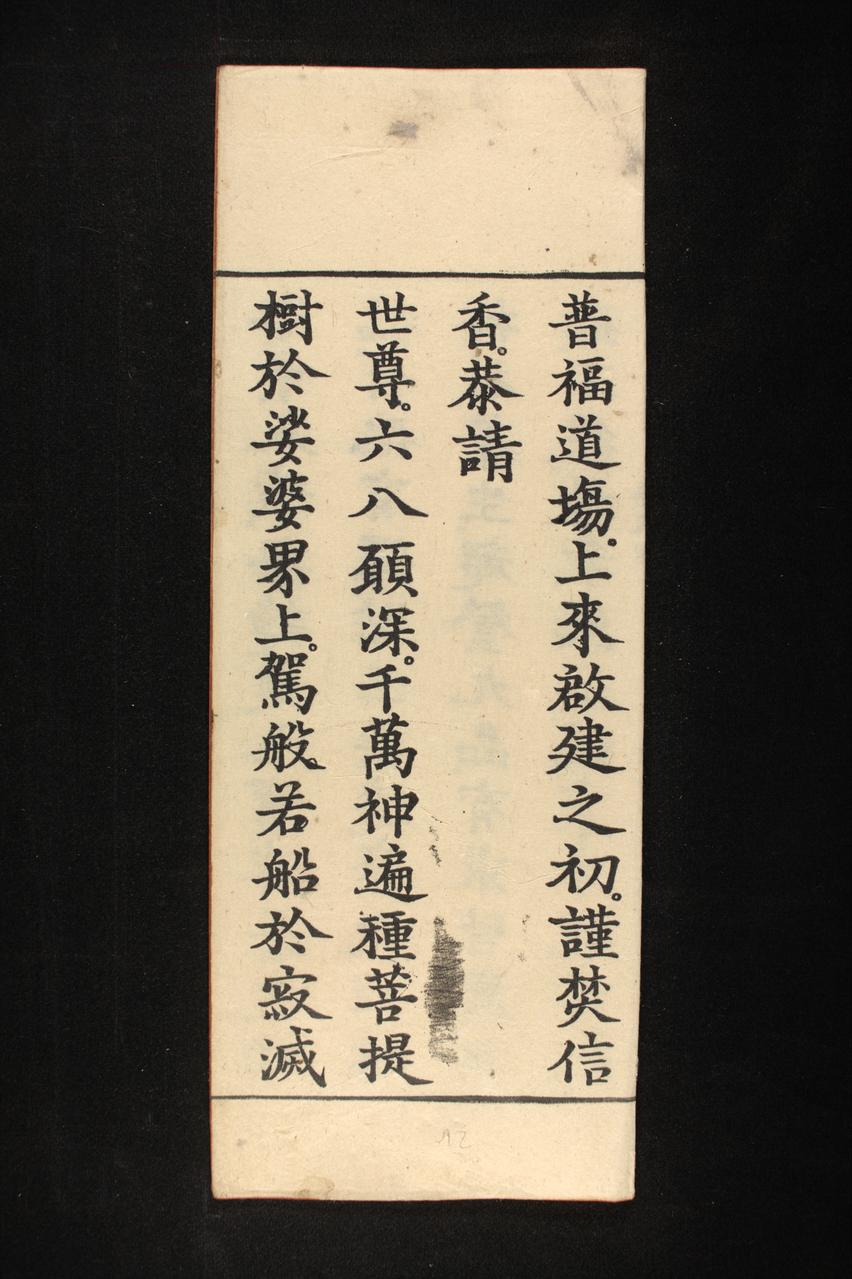 普福道塲。上來啟建之初。謹焚信
香。恭請
世尊。六八願深。千萬神遍種菩提
樹於娑婆界上。駕般若船於寂滅
12